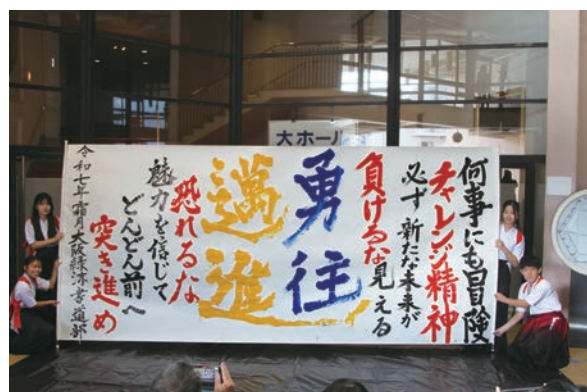 大ホール
何事にも冒険
チャレンジ精神
必ず新たな未来が
負けるな見える
勇往
邁進
恐れるな
魅力を信じて
どんどん前へ
突き進め
令和七年 霜月 大阪緑涼書道部